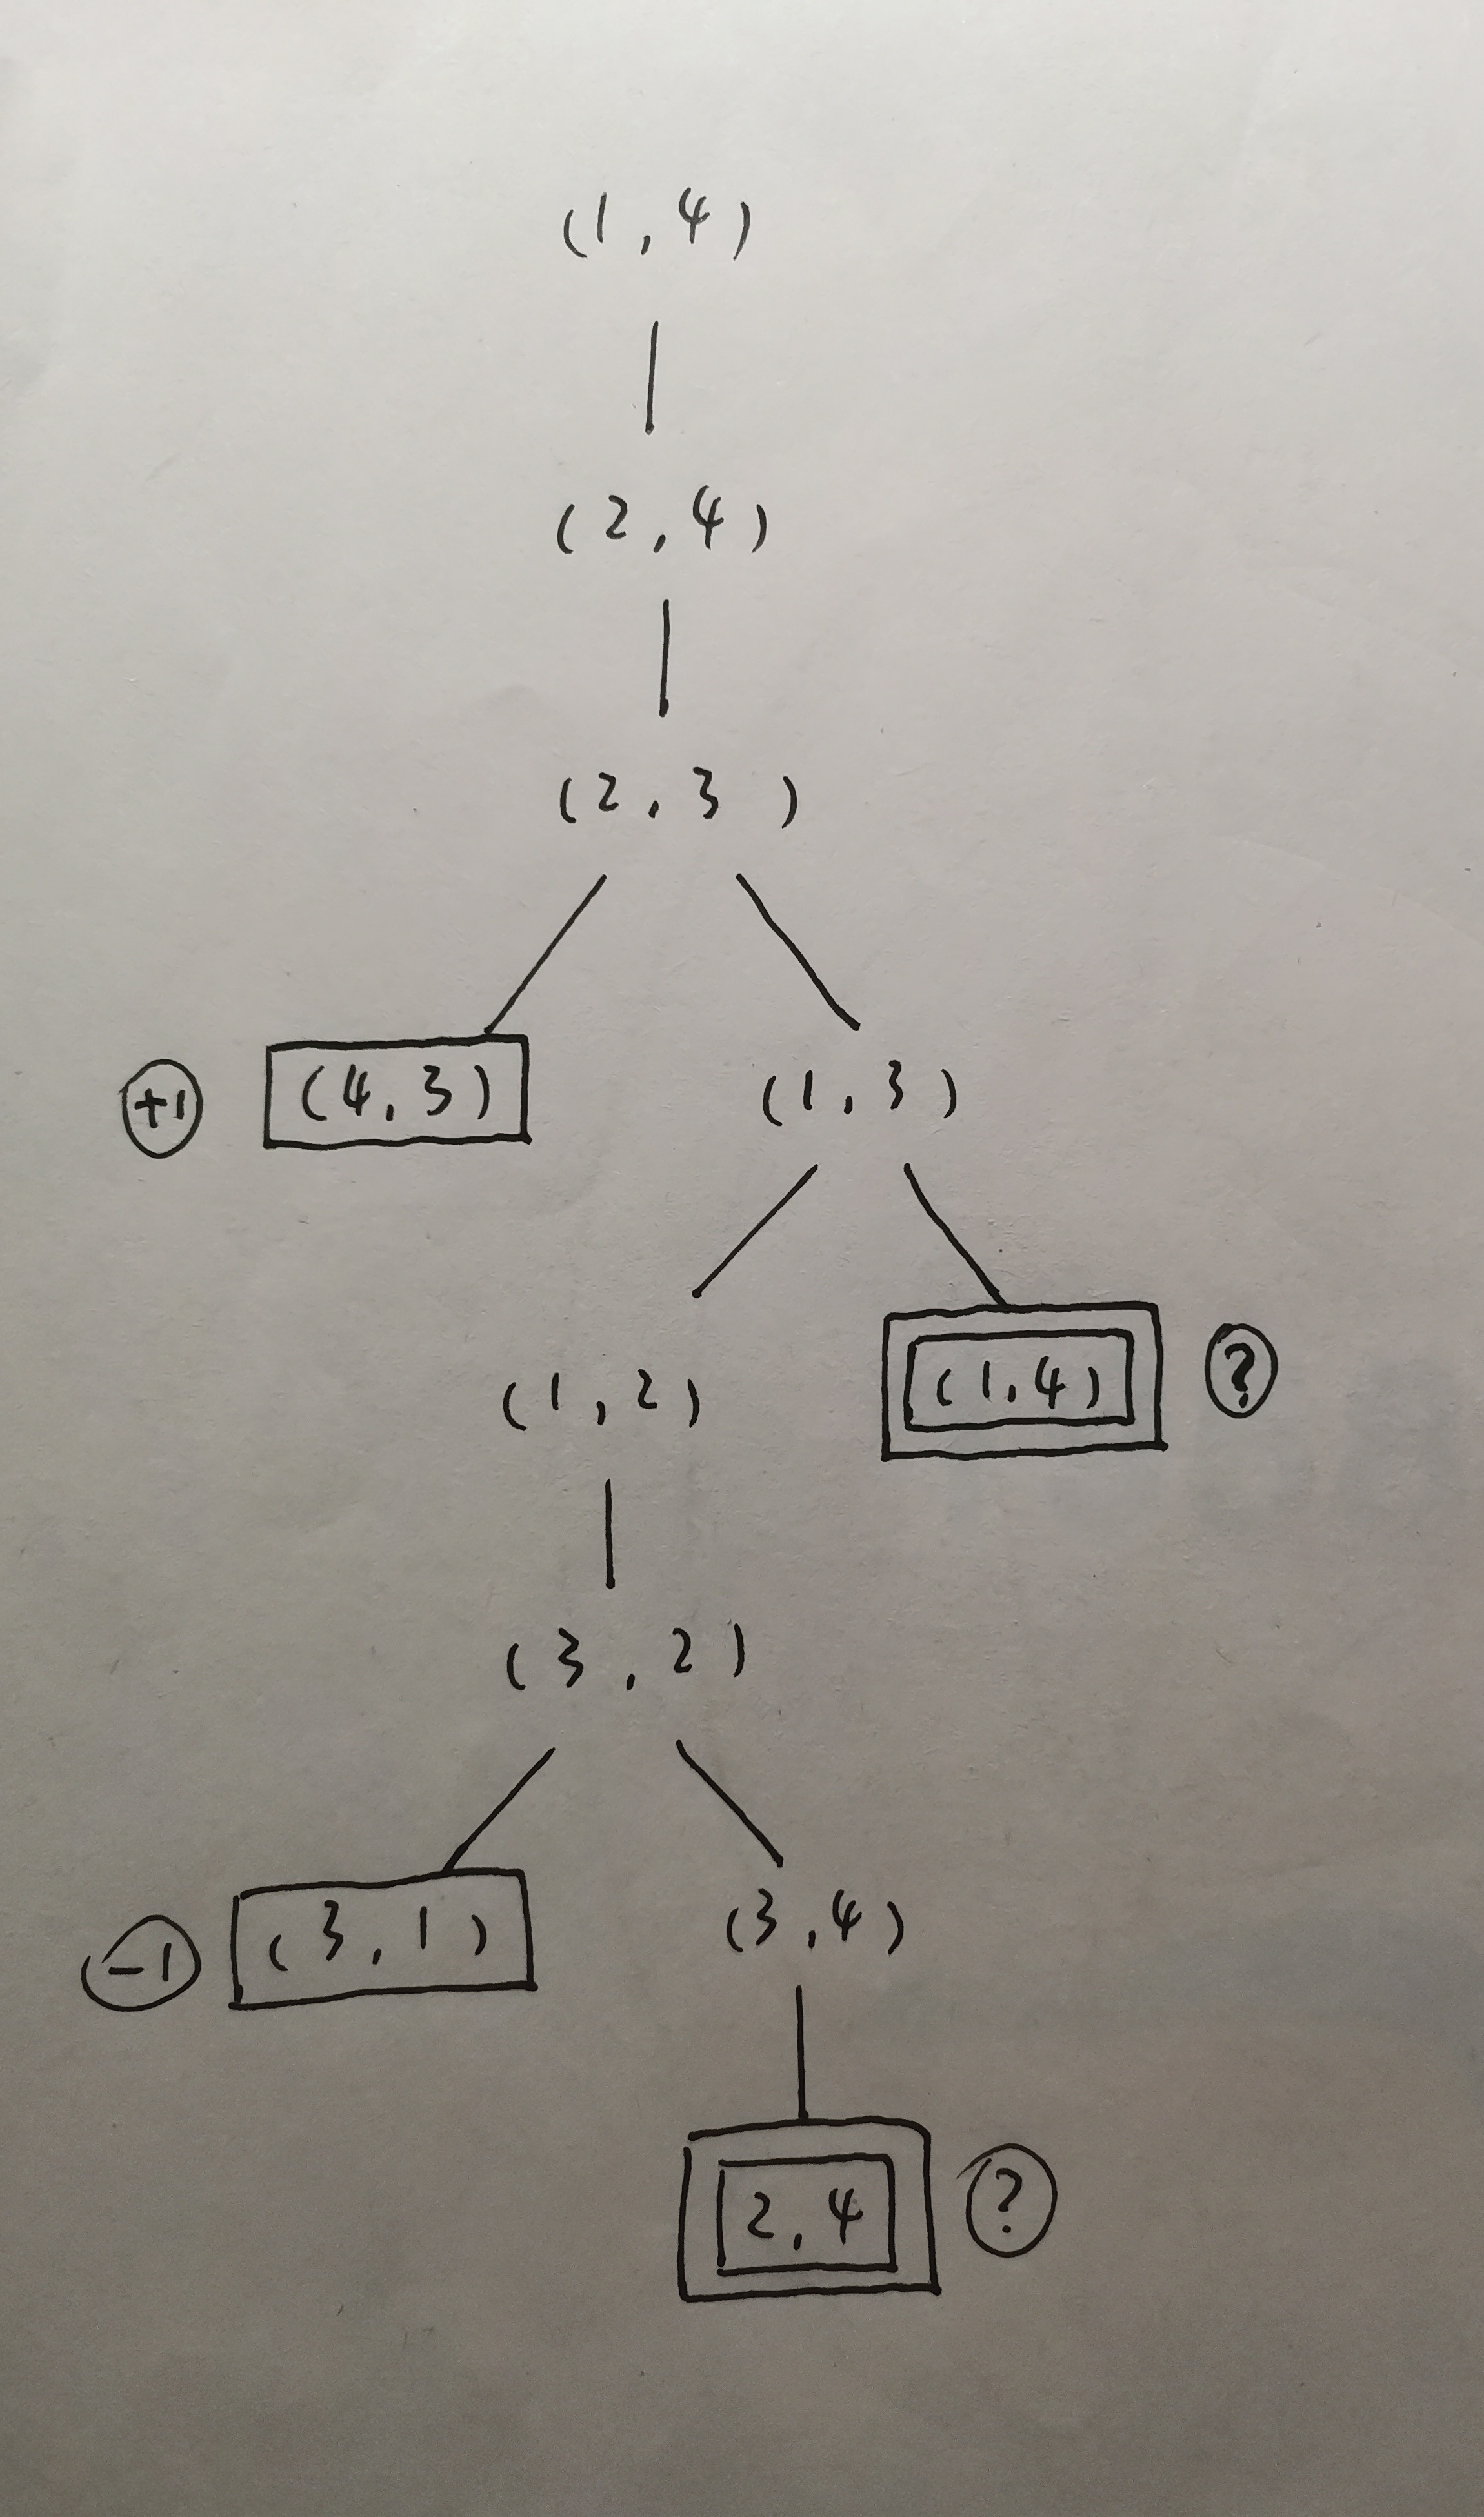 (1,4)
(2,4)
(2,3)
+1 (4,3) (1,3)
(1,2) (1,4) ?
(3,2)
-1 (3,1) (3,4)
2,4 ?